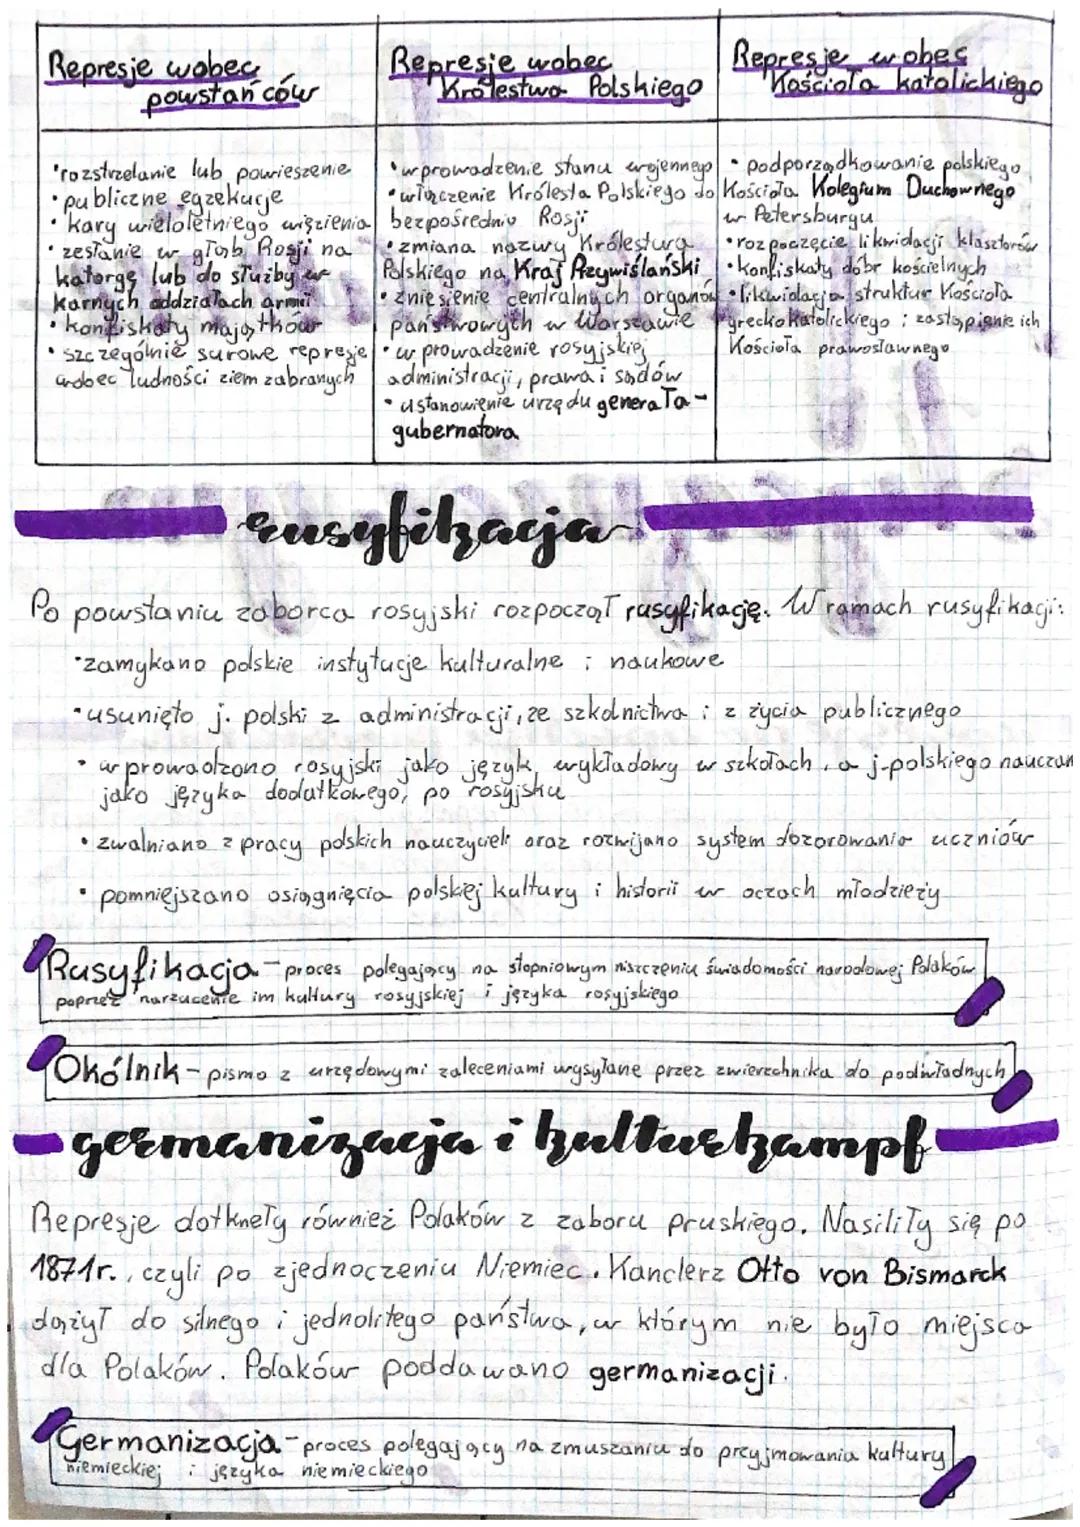 Represje wobec
powstańców
• rozstrzelanie lub powieszenie
• publiczne egzekucje
• kary wieloletniego więzienia
• zesłanie w głąb Rosji na
katorgę lub do służby w
karnych oddziałach armii
• konfiskaty majątków
• szczególnie surowe represje
wobec ludności ziem zabranych
Represje wobec
Królestwa Polskiego
• wprowadzenie stanu wojennego
• włączenie Królesta Polskiego do
bezpośrednio Rosji
• zmiana nazwy Królestwa
Polskiego na Kraj Przywiślański
• zniesienie centralnych organów
państwowych w Warszawie
• wprowadzenie rosyjskiej
administracji, prawa i sądów
• ustanowienie urzędu generała-
gubernatora
Represje wobec
Kościoła katolickiego
• podporządkowanie polskiego
Kościoła Kolegium Duchownego
w Petersburgu
• rozpoczęcie likwidacji klasztorów
• konfiskaty dóbr kościelnych
• likwidacja struktur Kościoła
greckokatolickiego i zastąpienie ich
Kościoła prawosławnego
rusyfikacja
Po powstaniu zaborca rosyjski rozpoczął rusyfikację. W ramach rusyfikacji:
• zamykano polskie instytucje kulturalne i naukowe
• usunięto j. polski z administracji, ze szkolnictwa i z życia publicznego
• wprowadzono rosyjski jako język wykładowy w szkołach, a j. polskiego nauczan
jako języka dodatkowego, po rosyjsku
• zwalniano z pracy polskich nauczycieli oraz rozwijano system dozorowania uczniów
• pomniejszano osiągnięcia polskiej kultury i historii w oczach młodzieży
Rusyfikacja - proces polegający na stopniowym niszczeniu świadomości narodowej Polaków
poprzez narzucenie im kultury rosyjskiej i języka rosyjskiego
Okólnik - pismo z urzędowymi zaleceniami wysyłane przez zwierzchnika do podwładnych
germanizacja i kulturkampf
Represje dotknęły również Polaków z zaboru pruskiego. Nasiliły się po
1871r., czyli po zjednoczeniu Niemiec. Kanclerz Otto von Bismarck
dążył do silnego i jednolitego państwa, w którym nie było miejsca
dla Polaków. Polaków poddawano germanizacji.
Germanizacja - proces polegający na zmuszaniu do przyjmowania kultury
niemieckiej i języka niemieckiego